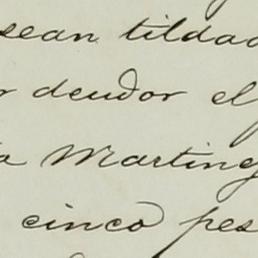 sean tildad
r deudor el
a Marting
cinco pes